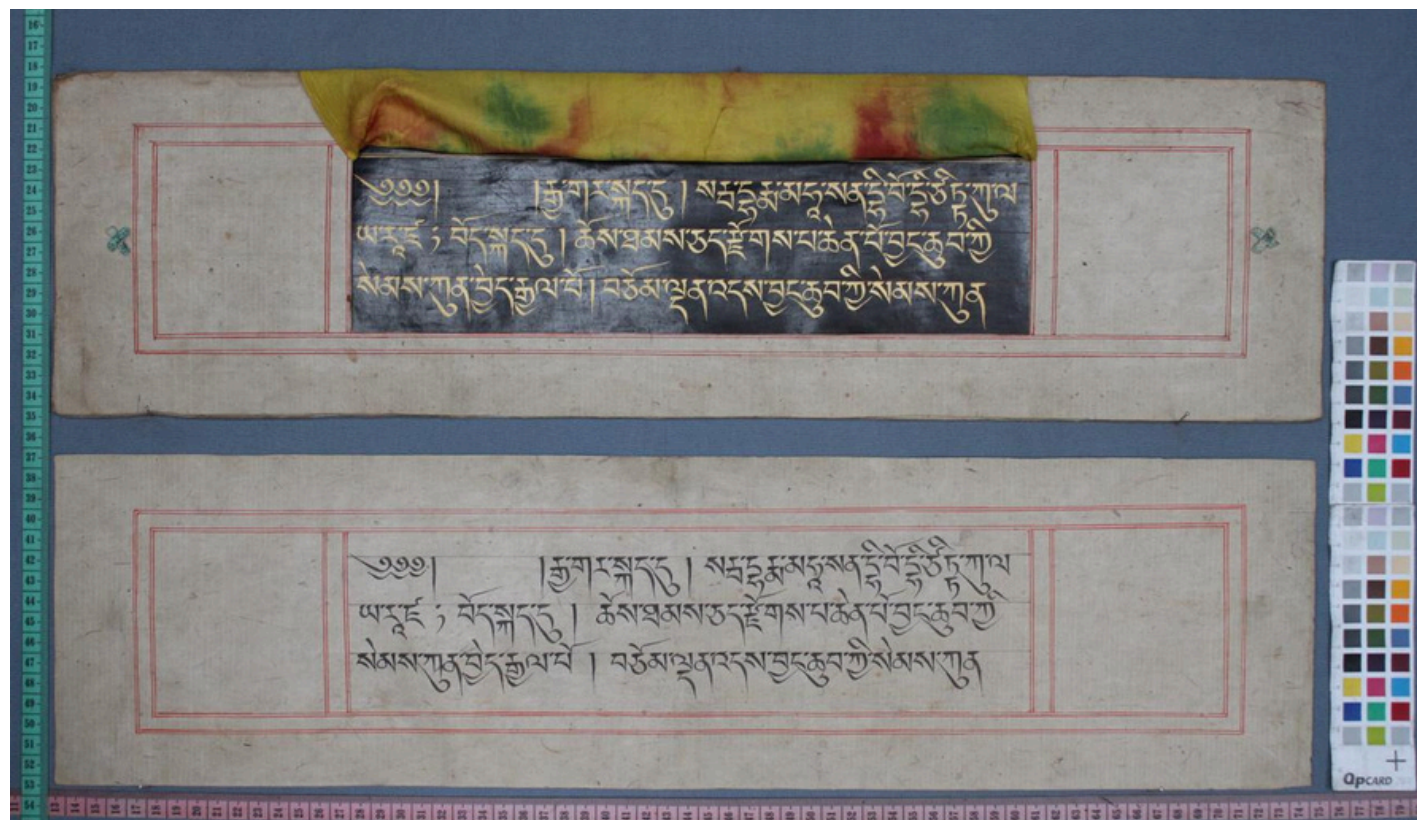 ༄༅༅། །རྒྱ་གར་སྐད་དུ། སརྦ་དྷརྨ་མ་ཧཱ་སན་དྷི་བོ་དྷི་ཙིཏྟ་ཀུ་ལ
ཡ་རཱ་ཛ༔ བོད་སྐད་དུ། ཆོས་ཐམས་ཅད་རྫོགས་པ་ཆེན་པོ་བྱང་ཆུབ་ཀྱི
སེམས་ཀུན་བྱེད་རྒྱལ་པོ། བཅོམ་ལྡན་འདས་བྱང་ཆུབ་ཀྱི་སེམས་ཀུན
༄༅༅། །རྒྱ་གར་སྐད་དུ། སརྦ་དྷརྨ་མ་ཧཱ་སན་དྷི་བོ་དྷི་ཙིཏྟ་ཀུ་ལ
ཡ་རཱ་ཛ༔ བོད་སྐད་དུ། ཆོས་ཐམས་ཅད་རྫོགས་པ་ཆེན་པོ་བྱང་ཆུབ་ཀྱི
སེམས་ཀུན་བྱེད་རྒྱལ་པོ། བཅོམ་ལྡན་འདས་བྱང་ཆུབ་ཀྱི་སེམས་ཀུན
QPCARD